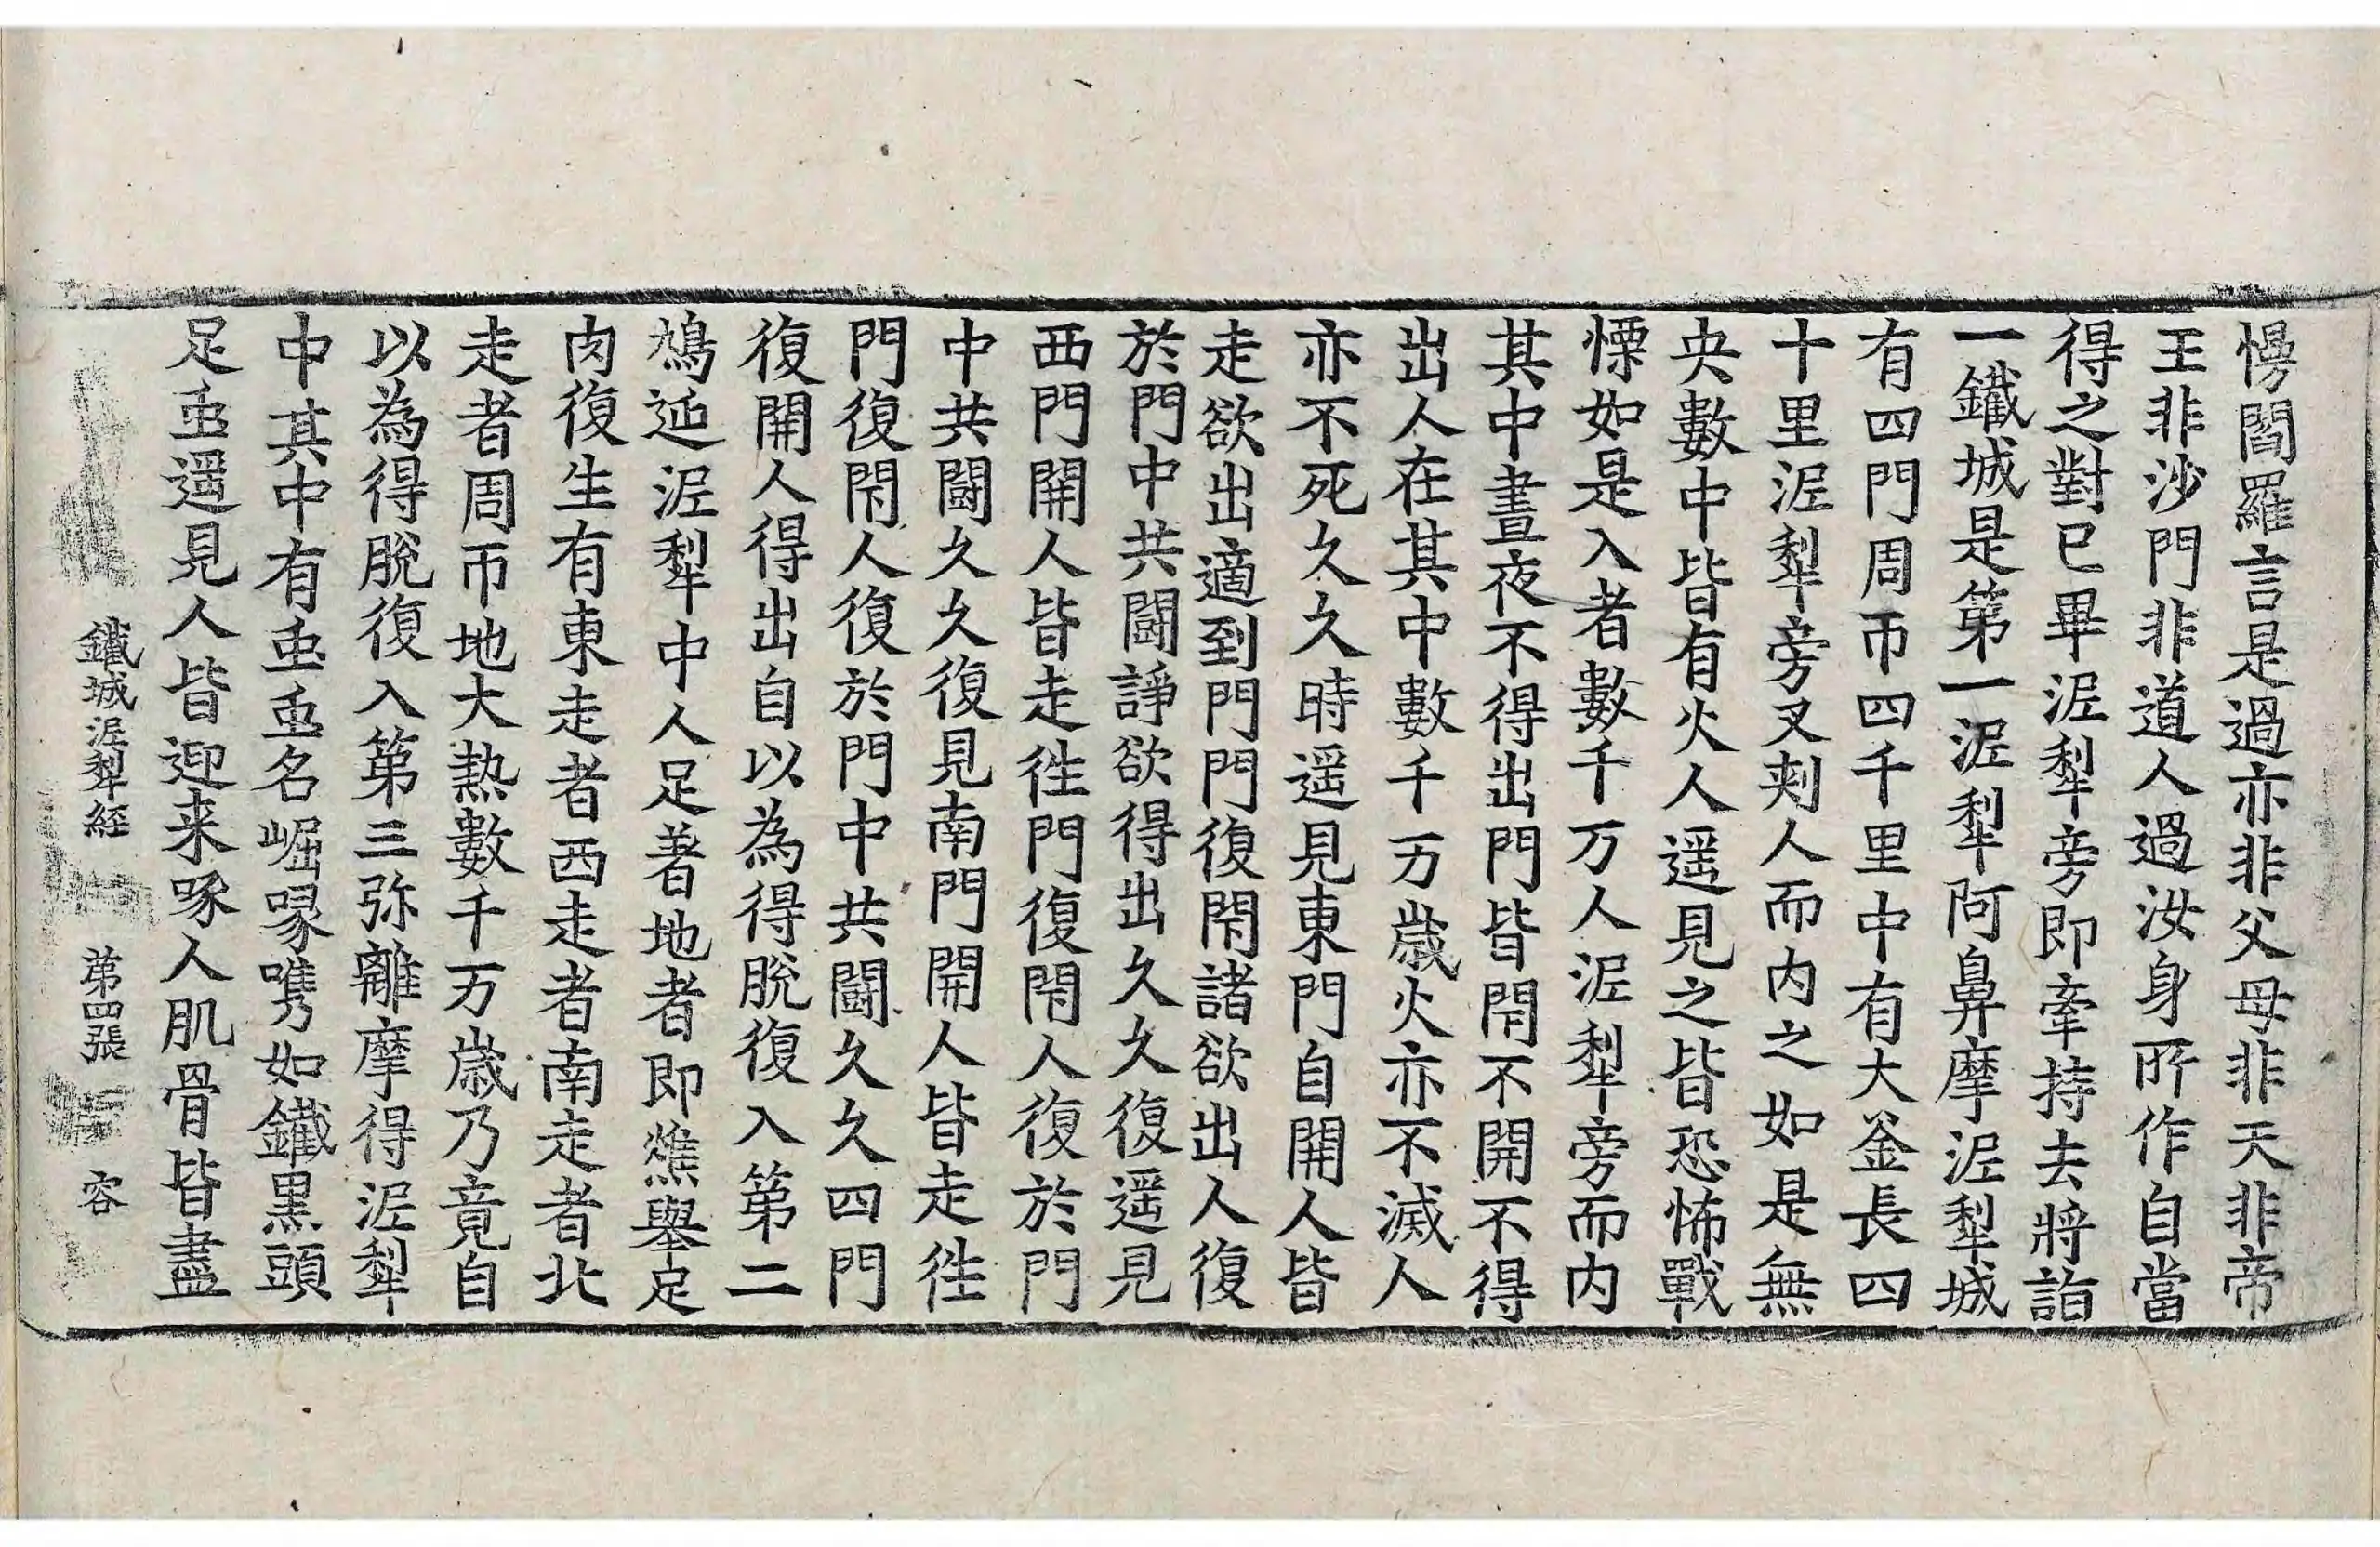 愕閻羅言是過亦非父母非天非帝
王非沙門非道人過汝身所作自當
得之對已畢泥犁旁即牽持去將詣
一鐵城是第一泥犁阿鼻摩泥犁城
有四門周帀四千里中有大釜長四
十里泥犁旁叉刾人而内之如是無
央數中皆有火人遥見之皆恐怖戰
慄如是入者數千万人泥犁旁而内
其中晝夜不得出門皆閇不開不得
出人在其中數千万歲火亦不滅人
亦不死久久時遥見東門自開人皆
走欲出適到門門復閇諸欲出人復
於門中共鬪諍欲得出久久復遥見
西門開人皆走徃門復閇人復於門
中共鬪久久復見南門開人皆走徃
門復閇人復於門中共鬪久久四門
復開人得出自以為得脫復入第二
鳩延泥犁中人足著地者即燋舉足
肉復生有東走者西走者南走者北
走者周帀地大熱數千万歲乃竟自
以為得脫復入第三弥離摩得泥犁
中其中有䖝䖝名崛喙㗦如鐵黒頭
足䖝遥見人皆迎来啄人肌骨皆盡
鐵城泥犁経　第四張　容